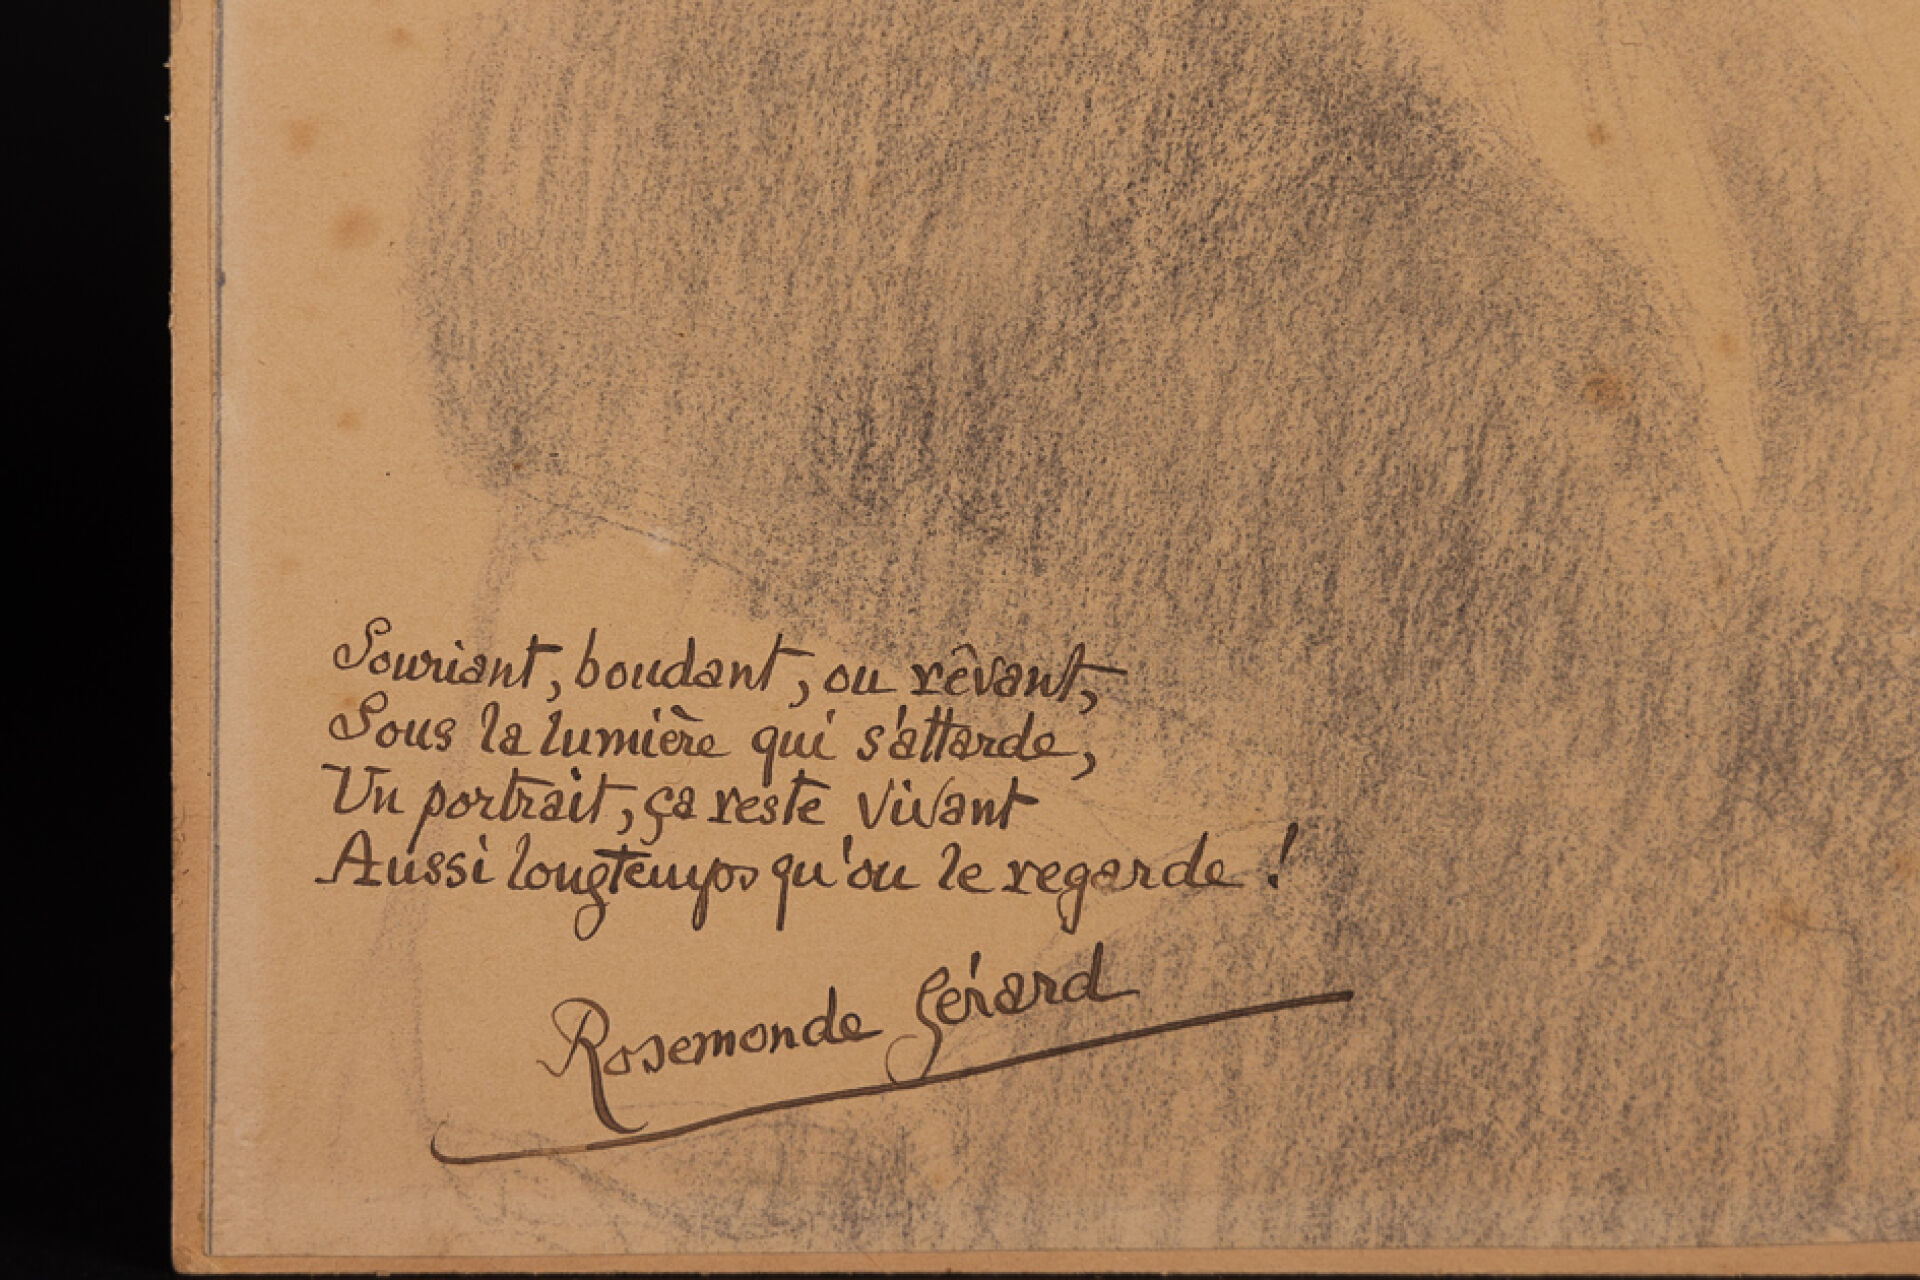 Souriant, boudant, ou rêvant,
Sous la lumière qui s'attarde,
Un portrait, ça reste vivant
Aussi longtemps qu'on le regarde !
Rosemonde Gérard